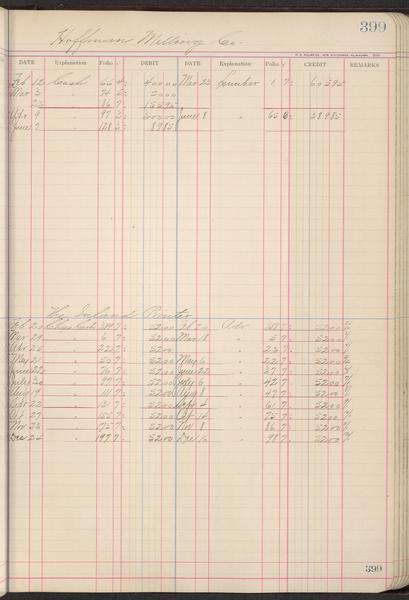 399
Hoffman Milling Co.
DATE Explanation Folio DEBIT DATE Explanation Folio CREDIT REMARKS
Feb 12 Cash 65 400 00 Mar 23 Lumber 1 7 605 95
Mar 3 " 74 50 00
23 " 86 7 155 95
Apr 9 " 97 200 00 June 8 " 65 6 289 85
June 7 " 128 89 85
The Inland Printer
Feb 20 389 7 52 00 Feb 20 Adv 388 7 52 00
Mar 29 " 6 7 52 00 Mar 18 " 5 7 52 00
Apr 25 " 22 7 52 00 " 23 7 52 00
May 21 " 50 7 52 00 May 6 " 22 7 52 00
June 22 " 76 7 52 00 June 22 " 37 7 52 00
July 20 " 97 7 52 00 July 6 " 42 7 52 00
Aug 19 " 111 7 52 00 Aug 8 " 47 7 52 00
Sept 22 " 131 7 52 00 Sept 4 " 61 7 52 00
Oct 27 " 155 7 52 00 Oct 14 " 75 7 52 00
Nov 23 " 175 7 52 00 Nov 8 " 86 7 52 00
Dec 24 " 197 7 52 00 Dec 16 " 98 7 52 00
399